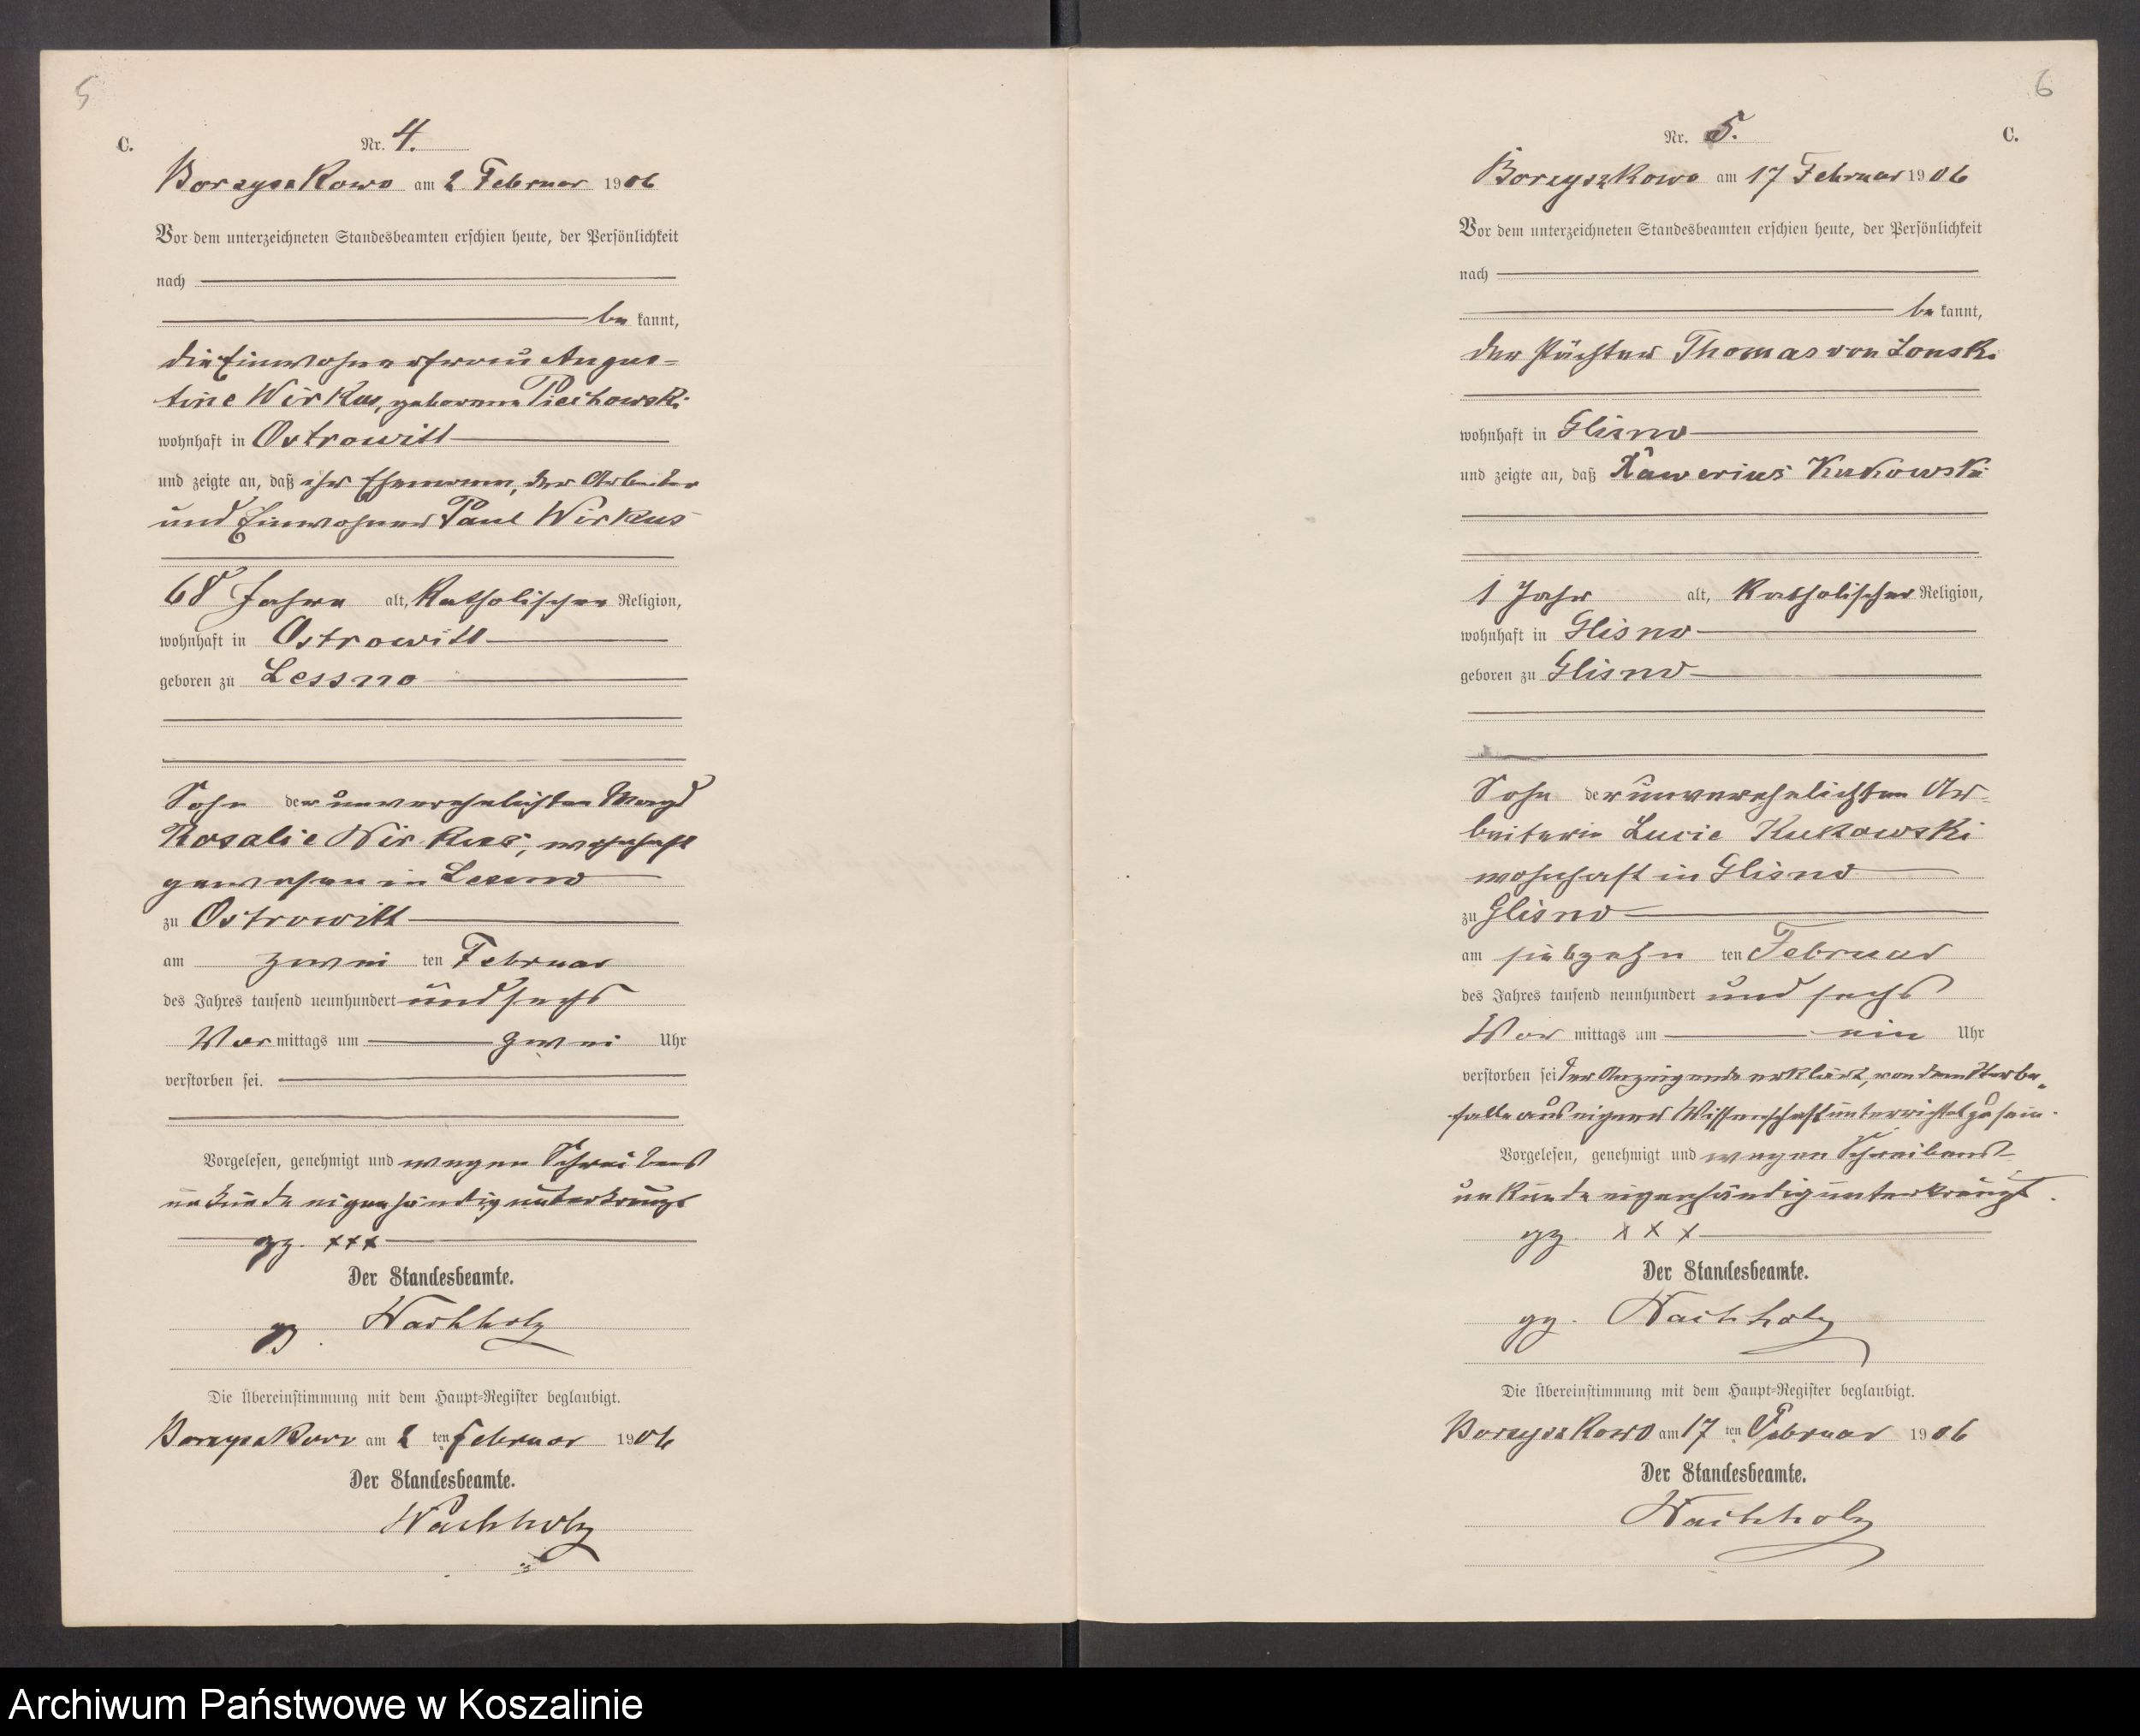 5
C.
Nr. 4.
Borzyszkowo am 2 Februar 1906
Vor dem unterzeichneten Standesbeamten erschien heute, der Persönlichkeit
nach
be kannt,
die Einwohnerfrau Augus-
tine Wirkus, geborene Piechowski
wohnhaft in Ostrowitt
und zeigte an, daß ihr Ehemann, der Arbeiter
und Einwohner Paul Wirkus
68 Jahre alt, Katholischer Religion,
wohnhaft in Ostrowitt
geboren zu Lessno
Sohn der unverehelichten Magd
Rosalie Wirkus, wohnhaft
gewesen in Lessno
zu Ostrowitt
am zwei ten Februar
des Jahres tausend neunhundert und sechs
Vor mittags um zwei Uhr
verstorben sei.
Vorgelesen, genehmigt und wegen Schreibens
unkunde eigenhändig unterkreuzt
gz. +++
Der Standesbeamte.
gz. Wachholz
Die Übereinstimmung mit dem Haupt-Register beglaubigt.
Borzyszkowo am 2 ten Februar 1906
Der Standesbeamte.
Wachholz
6
Nr. 5.
C.
Borzyszkowo am 17 Februar 1906
Vor dem unterzeichneten Standesbeamten erschien heute, der Persönlichkeit
nach
be kannt,
der Pächter Thomas von Lonski
wohnhaft in Glisno
und zeigte an, daß Xawerius Kukowski
1 Jahr alt, Katholischer Religion,
wohnhaft in Glisno
geboren zu Glisno
Sohn der unverehelichten Ar-
beiterin Lucie Kukowski
wohnhaft in Glisno
zu Glisno
am siebzehn ten Februar
des Jahres tausend neunhundert und sechs
Vor mittags um ein Uhr
verstorben sei der Anzeigende erklärt, von dem Sterbe-
falle aus eigener Wissenschaft unterrichtet zu sein.
Vorgelesen, genehmigt und wegen Schreibens-
unkunde eigenhändig unterkreuzt.
gz. x x x
Der Standesbeamte.
gz. Wachholz
Die Übereinstimmung mit dem Haupt-Register beglaubigt.
Borzyszkowo am 17 ten Februar 1906
Der Standesbeamte.
Wachholz
Archiwum Państwowe w Koszalinie